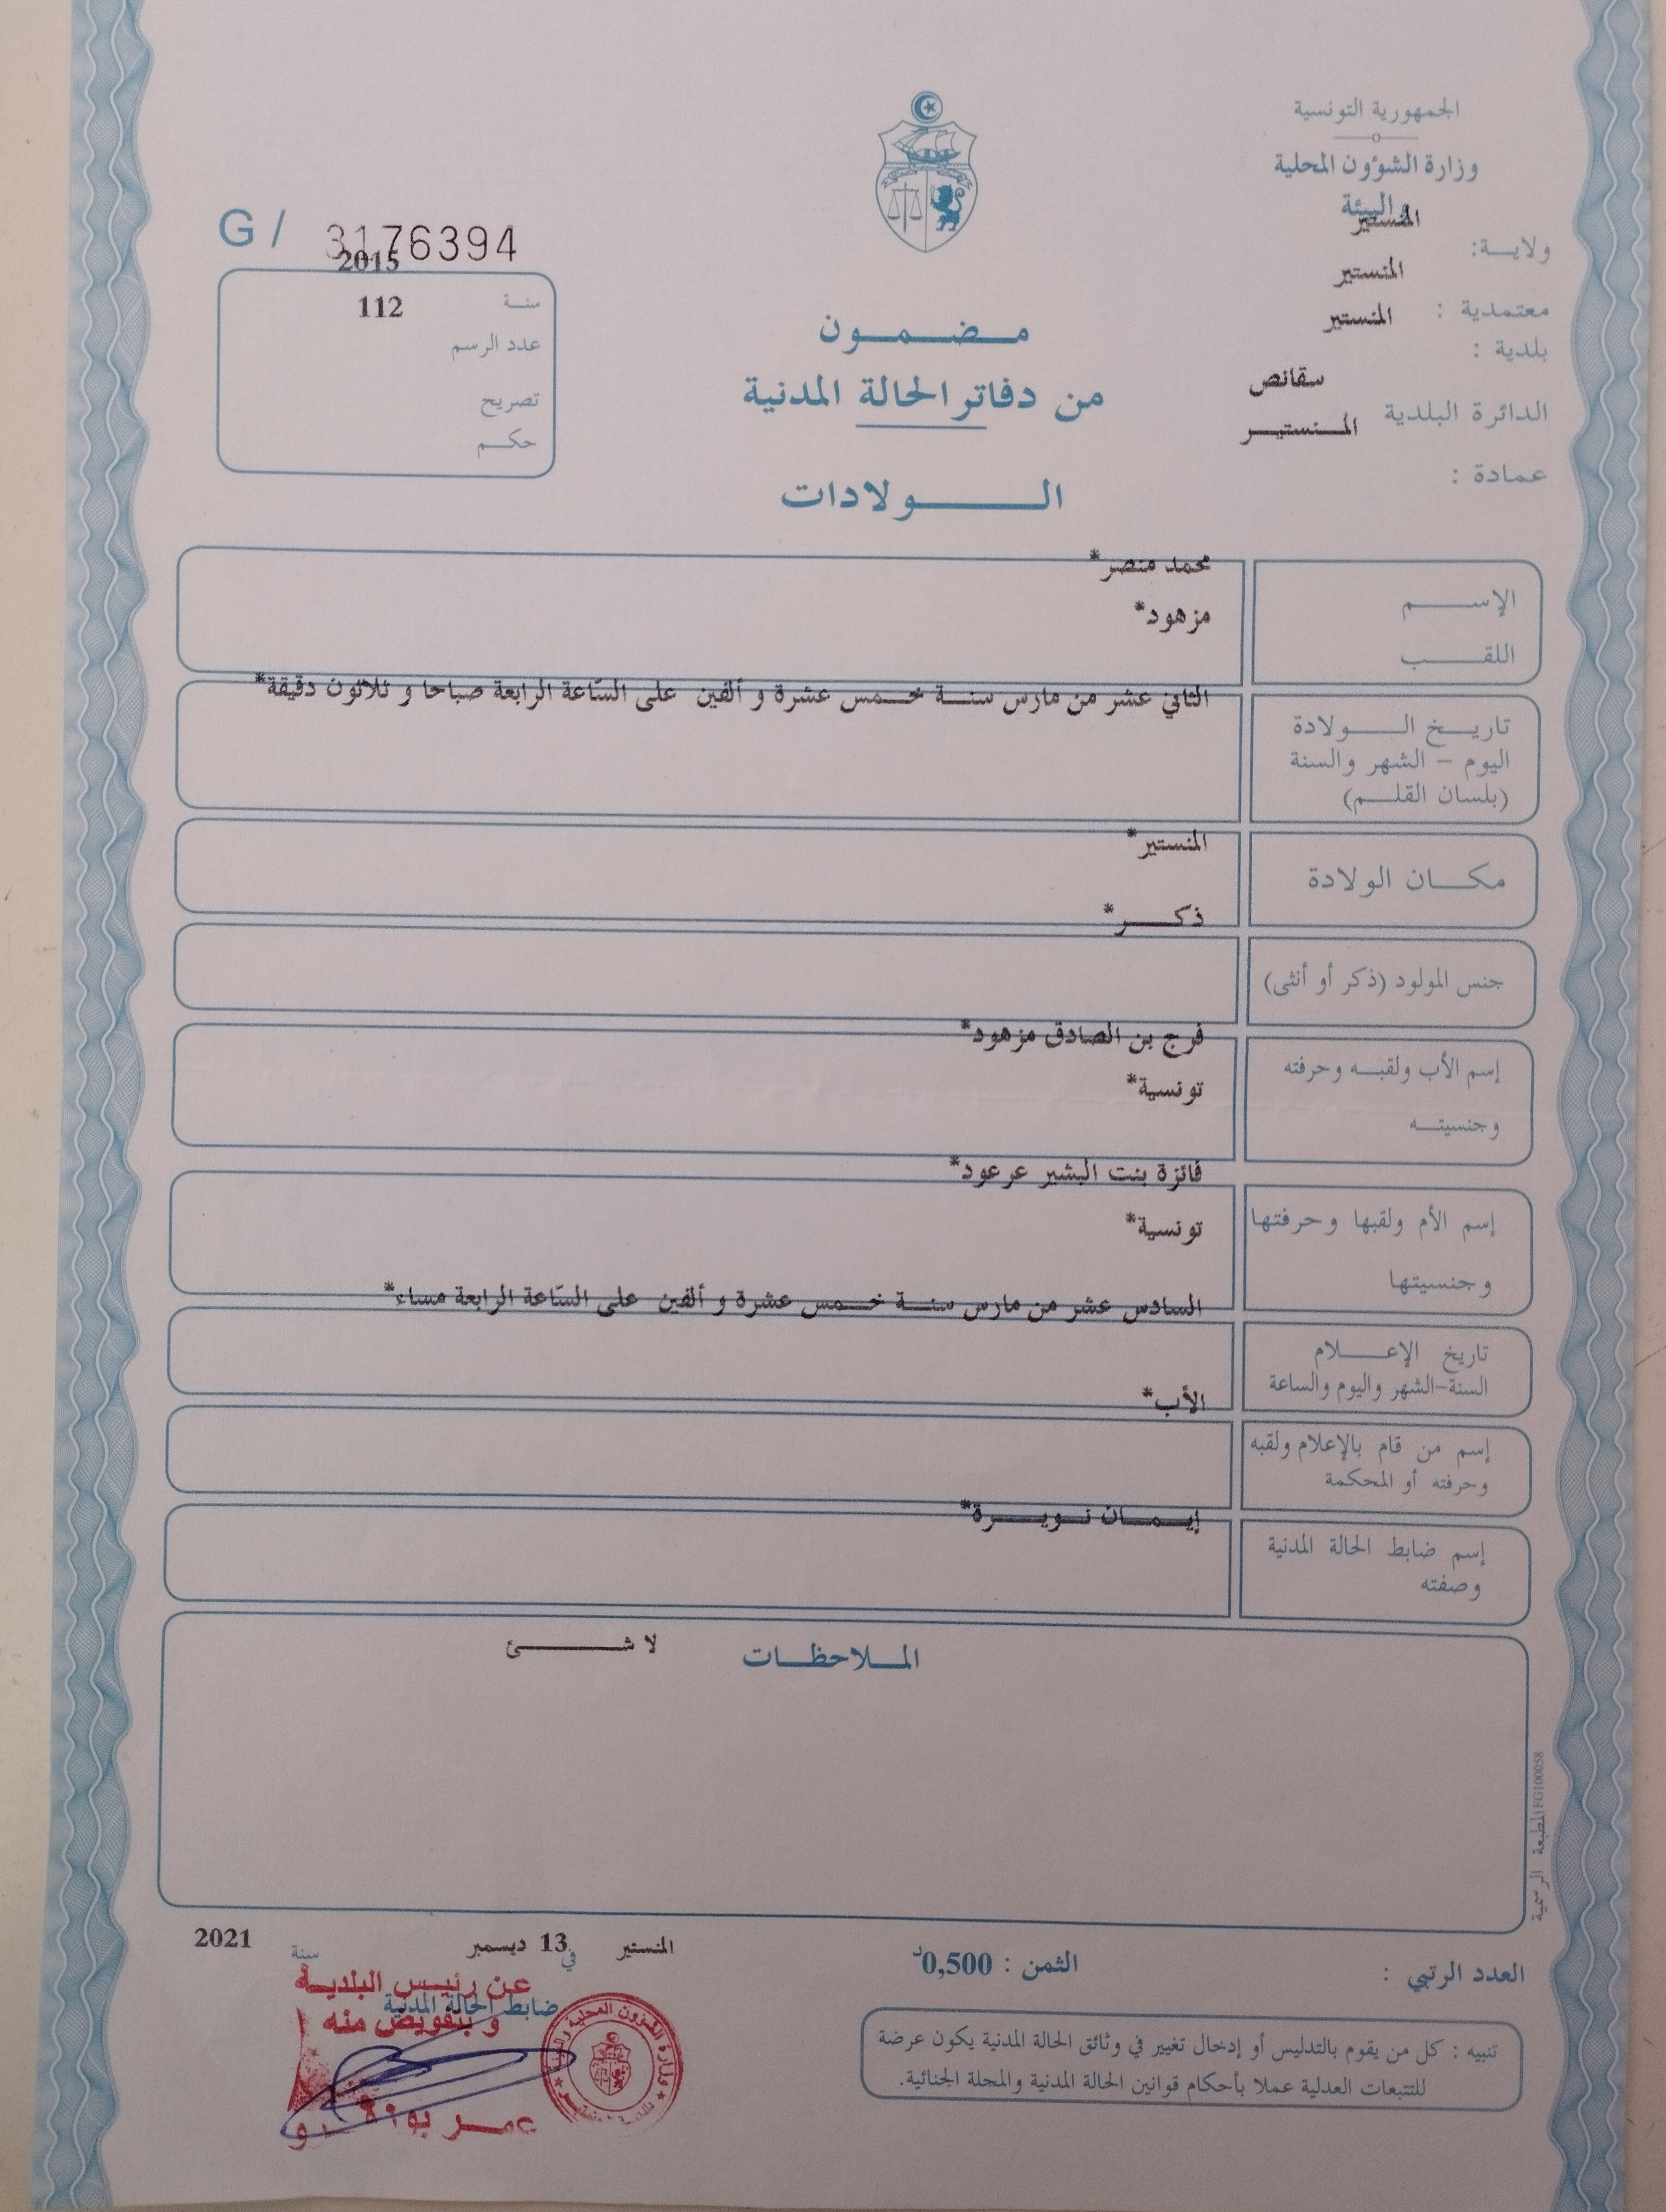 الجمهورية التونسية
وزارة الشؤون المحلية
والبيئة
ولاية: المنستير
معتمدية : المنستير
بلدية : المنستير
الدائرة البلدية سقانص
عمادة : المنستير
G/ 3176394
سنة 2015
عدد الرسم 112
تصريح
حكم
مضمون
من دفاتر الحالة المدنية
الولادات
الإسم محمد منصر*
اللقب مزهود*
تاريخ الولادة
اليوم - الشهر والسنة
(بلسان القلم)
الثاني عشر من مارس سنة خمس عشرة و ألفين على السّاعة الرابعة صباحا و ثلاثون دقيقة*
مكان الولادة المنستير*
جنس المولود (ذكر أو أنثى) ذكر*
إسم الأب ولقبه وحرفته فرج بن الصادق مزهود*
وجنسيته تونسية*
إسم الأم ولقبها وحرفتها فائزة بنت البشير عرعود*
وجنسيتها تونسية*
تاريخ الإعلام
السنة-الشهر واليوم والساعة
السادس عشر من مارس سنة خمس عشرة و ألفين على السّاعة الرابعة مساء*
إسم من قام بالإعلام ولقبه
وحرفته أو المحكمة
الأب*
إسم ضابط الحالة المدنية
وصفته
إيمان نويرة*
الملاحظات لا شئ
المطبعة الرسمية FG100058
العدد الرتبي :
الثمن : 0,500د
المنستير في 13 ديسمبر سنة 2021
ضابط الحالة المدنية
عن رئيس البلدية
و بتفويض منه
عمر
تنبيه : كل من يقوم بالتدليس أو إدخال تغيير في وثائق الحالة المدنية يكون عرضة
للتتبعات العدلية عملا بأحكام قوانين الحالة المدنية والمجلة الجنائية.